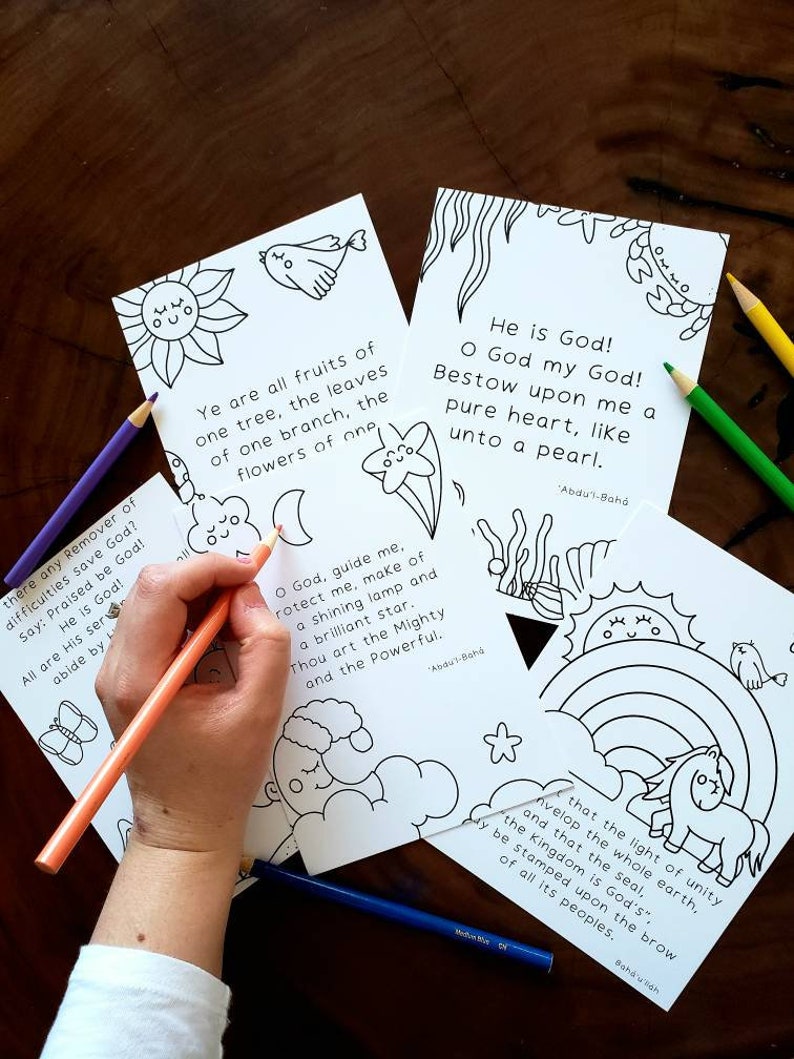 Ye are all fruits of
one tree, the leaves
of one branch, the
flowers of one
He is God!
O God my God!
Bestow upon me a
pure heart, like
unto a pearl.
'Abdu'l-Bahá
there any Remover of
difficulties save God?
Say: Praised be God!
He is God!
All are His
abide by
all
O God, guide me,
rotect me, make of
a shining lamp and
a brilliant star.
Thou art the Mighty
and the Powerful.
'Abdu'l-Bahá
that the light of unity
nvelop the whole earth,
and that the seal,
the Kingdom is God's",
y be stamped upon the brow
of all its peoples.
Bahá'u'lláh
Medium Blue